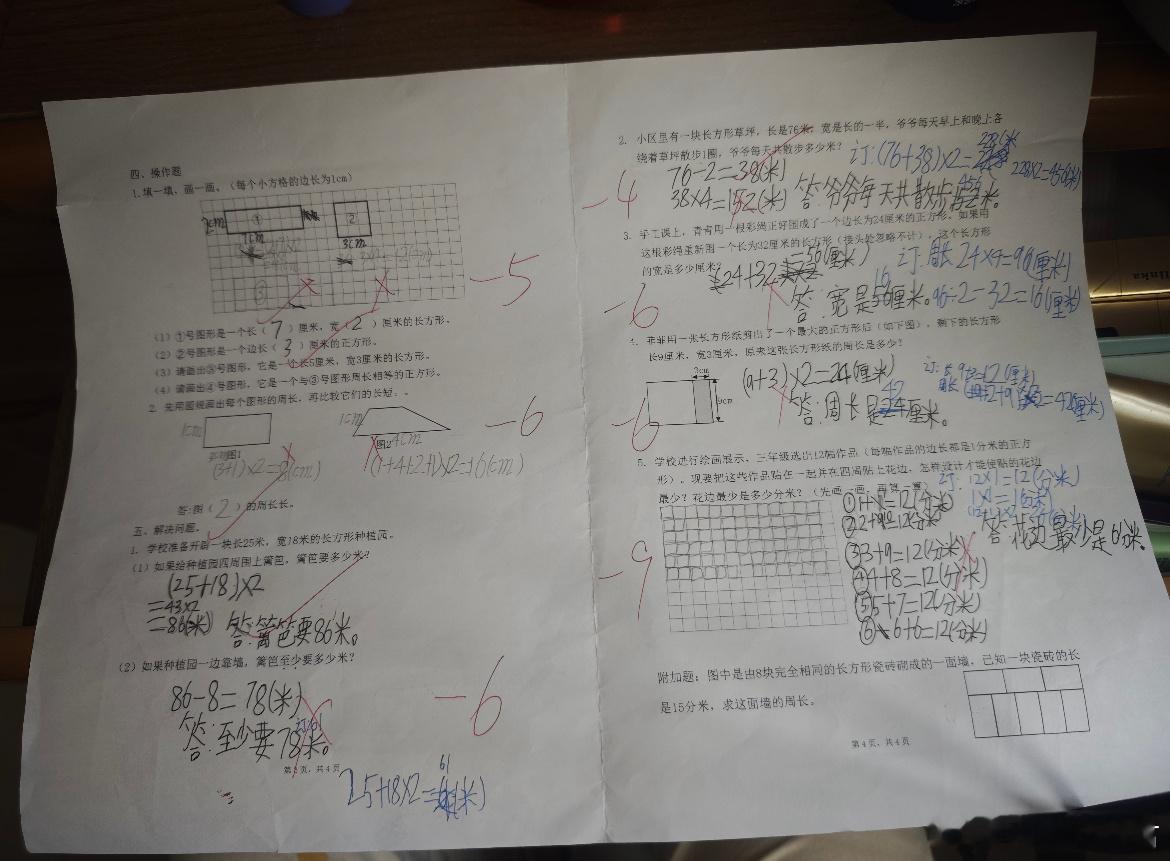 四、操作题
1.填一填、画一画。（每个小方格的边长为1cm）
① ②
7cm 3cm
③
-5
（1）①号图形是一个长（ 7 ）厘米，宽（ 2 ）厘米的长方形。
（2）②号图形是一个边长（ 3 ）厘米的正方形。
（3）请画出③号图形，它是一个长5厘米，宽3厘米的长方形。
（4）请画出④号图形，它是一个与③号图形周长相等的正方形。
2. 先用圆规画出每个图形的周长，再比较它们的长短。
1cm 图1
1cm 图2 4cm
-6
(3+1)×2=8(cm)
(1+4+2+1)×2=16(cm)
答:图（ 2 ）的周长长。
五、解决问题。
1. 学校准备开辟一块长25米，宽18米的长方形种植园。
（1）如果给种植园四周围上篱笆，篱笆要多少米？
(25+18)×2
=43×2
=86(米) 答:篱笆要86米。
（2）如果种植园一边靠墙，篱笆至少要多少米？
86-8=78(米)
答:至少要78米。
-6
第3页，共4页
25+18×2= 61 (米)
2. 小区里有一块长方形草坪，长是76米，宽是长的一半，爷爷每天早上和晚上各
绕着草坪散步1圈，爷爷每天共散步多少米？ 订:(76+38)×2=228米
76÷2=38(米) 228×2=456(米)
38×4=152(米) 答:爷爷每天共散步152米。
456
-4
3. 手工课上，青青用一根彩绳正好围成了一个边长为24厘米的正方形。如果用
这根彩绳重新围一个长为32厘米的长方形（接头处忽略不计），这个长方形
的宽是多少厘米？
24+32=56(厘米) 订:周长 24×4=96(厘米)
16
答:宽是56厘米。 96÷2-32=16(厘米)
-6
4. 菲菲用一张长方形纸剪出了一个最大的正方形后（如下图），剩下的长方形
长9厘米，宽3厘米，原来这张长方形纸的周长是多少？
3cm
9cm
(9+3)×2=24(厘米) 订:长9+3=12(厘米)
周长(12+9)×2=42(厘米)
42
答:周长是24厘米。
-6
5. 学校进行绘画展示，三年级选出12幅作品（每幅作品的边长都是1分米的正方
形）。现要把这些作品贴在一起并在四周贴上花边，怎样设计才能使贴的花边
最少？花边最少是多少分米？（先画一画，再算一算） 订:12×1=12(分米)
①
②2+10=12(分米)
③3+9=12(分米)
④4+8=12(分米)
⑤5+7=12(分米)
⑥6+6=12(分米)
答:花边最少是6分米。
-9
附加题：图中是由8块完全相同的长方形瓷砖砌成的一面墙，已知一块瓷砖的长
是15分米，求这面墙的周长。
第4页，共4页